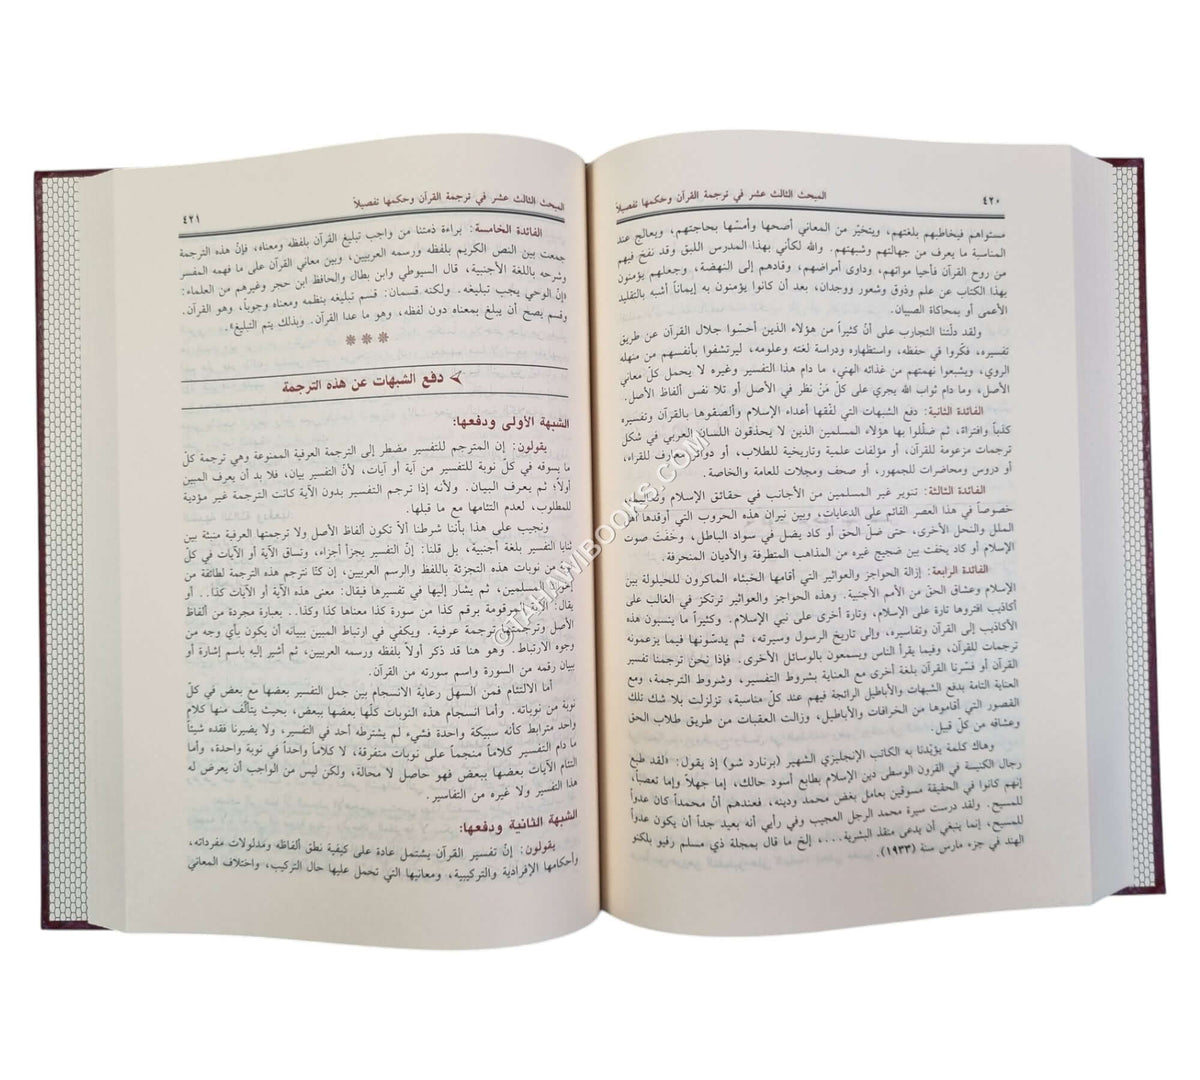 ٤٢٠
المبحث الثالث عشر في ترجمة القرآن وحكمها تفصيلاً
مستواهم فيخاطبهم بلغتهم، ويتخيّر من المعاني أصحها وأمسّها بحاجتهم، ويعالج عند
المناسبة ما يعرف من جهالتهم وشبهتهم. والله لكأني بهذا المدرس اللبق وقد نفخ فيهم
من روح القرآن فأحيا مواتهم، وداوى أمراضهم، وقادهم إلى النهضة، وجعلهم يؤمنون
بهذا الكتاب عن علم وذوق وشعور ووجدان، بعد أن كانوا يؤمنون به إيماناً أشبه بالتقليد
الأعمى أو بمحاكاة الصبيان.
ولقد دلّتنا التجارب على أنّ كثيراً من هؤلاء الذين أحسّوا جلال القرآن عن طريق
تفسيره، فكّروا في حفظه، واستظهاره ودراسة لغته وعلومه، ليرتشفوا بأنفسهم من منهله
الروي، ويشبعوا نهمتهم من غذائه الهني، ما دام هذا التفسير وغيره لا يحمل كلّ معاني
الأصل، وما دام ثواب الله يجري على كلّ مَنْ نظر في الأصل أو تلا نفس ألفاظ الأصل.
الفائدة الثانية: دفع الشبهات التي لفّقها أعداء الإسلام وألصقوها بالقرآن وتفسيره
كذباً وافتراء، ثم ضلّلوا بها هؤلاء المسلمين الذين لا يحذقون اللسان العربي في شكل
ترجمات مزعومة للقرآن، أو مؤلفات علمية وتاريخية للطلاب، أو دوائر معارف للقراء،
أو دروس ومحاضرات للجمهور، أو صحف ومجلات للعامة والخاصة.
الفائدة الثالثة: تنوير غير المسلمين من الأجانب في حقائق الإسلام وتعاليمه،
خصوصاً في هذا العصر القائم على الدعايات، وبين نيران هذه الحروب التي أوقدها أهل
الملل والنحل الأخرى، حتى ضلّ الحق أو كاد يضل في سواد الباطل، وخَفَتَ صوت
الإسلام أو كاد يخفت بين ضجيج غيره من المذاهب المتطرفة والأديان المنحرفة.
الفائدة الرابعة: إزالة الحواجز والعواثير التي أقامها الخبثاء الماكرون للحيلولة بين
الإسلام وعشاق الحقّ من الأمم الأجنبية. وهذه الحواجز والعواثير ترتكز في الغالب على
أكاذيب افتروها تارة على الإسلام، وتارة أخرى على نبي الإسلام. وكثيراً ما ينسبون هذه
الأكاذيب إلى القرآن وتفاسيره، وإلى تاريخ الرسول وسيرته، ثم يدسّونها فيما يزعمونه
ترجمات للقرآن، وفيما يقرأ الناس ويسمعون بالوسائل الأخرى. فإذا نحن ترجمنا تفسير
القرآن أو فسّرنا القرآن بلغة أخرى مع العناية بشروط التفسير، وشروط الترجمة، ومع
العناية التامة بدفع الشبهات والأباطيل الرائجة فيهم عند كلّ مناسبة، تزلزلت بلا شك تلك
القصور التي أقاموها من الخرافات والأباطيل، وزالت العقبات من طريق طلاب الحق
وعشاقه من كلّ قبيل.
وهاك كلمة يؤيّدنا به الكاتب الإنجليزي الشهير (برنارد شو) إذ يقول: «لقد طبع
رجال الكنيسة في القرون الوسطى دين الإسلام بطابع أسود حالك، إما جهلاً وإما تعصباً،
إنهم كانوا في الحقيقة مسوقين بعامل بغض محمد ودينه، فعندهم أنّ محمداً كان عدواً
للمسيح. ولقد درست سيرة محمد الرجل العجيب وفي رأيي أنه بعيد جداً أن يكون عدواً
للمسيح، إنما ينبغي أن يدعى منقذ البشرية...، إلخ ما قال بمجلة ذي مسلم رفيو بلكنو
الهند في جزء مارس سنة (١٩٣٣).
المبحث الثالث عشر في ترجمة القرآن وحكمها تفصيلاً
٤٢١
الفائدة الخامسة: براءة ذمتنا من واجب تبليغ القرآن بلفظه ومعناه، فإنّ هذه الترجمة
جمعت بين النص الكريم بلفظه ورسمه العربيين، وبين معاني القرآن على ما فهمه المفسر
وشرحه باللغة الأجنبية، قال السيوطي وابن بطال والحافظ ابن حجر وغيرهم من العلماء:
«إنّ الوحي يجب تبليغه. ولكنه قسمان: قسم تبليغه بنظمه ومعناه وجوباً، وهو القرآن.
وقسم يصح أن يبلغ بمعناه دون لفظه، وهو ما عدا القرآن. وبذلك يتم التبليغ».
***
دفع الشبهات عن هذه الترجمة
الشبهة الأولى ودفعها:
يقولون: إن المترجم للتفسير مضطر إلى الترجمة العرفية الممنوعة وهي ترجمة كلّ
ما يسوقه في كلّ نوبة للتفسير من آية أو آيات، لأنّ التفسير بيان، فلا بد أن يعرف المبين
أولاً؛ ثم يعرف البيان. ولأنه إذا ترجم التفسير بدون الآية كانت الترجمة غير مؤدية
للمطلوب، لعدم التئامها مع ما قبلها.
ونجيب على هذا بأننا شرطنا ألا تكون ألفاظ الأصل ولا ترجمتها العرفية منبثة بين
ثنايا التفسير بلغة أجنبية، بل قلنا: إنّ التفسير يجزأ أجزاء، وتساق الآية أو الآيات في كلّ
من نوبات هذه التجزئة باللفظ والرسم العربيين، إن كنّا نترجم هذه الترجمة لطائفة من
المسلمين، ثم يشار إليها في تفسيرها فيقال: معنى هذه الآية أو الآيات كذا.. أو
يقال: المرقومة برقم كذا من سورة كذا معناها كذا وكذا.. بعبارة مجردة من ألفاظ
الأصل وترجمتها ترجمة عرفية. ويكفي في ارتباط المبين ببيانه أن يكون بأي وجه من
وجوه الارتباط. وهو هنا قد ذكر أولاً بلفظه ورسمه العربيين، ثم أشير إليه باسم إشارة أو
بيان رقمه من السورة واسم سورته من القرآن.
أما الالتئام فمن السهل رعاية الانسجام بين جمل التفسير بعضها مع بعض في كلّ
نوبة من نوباته. وأما انسجام هذه النوبات كلّها بعضها ببعض، بحيث يتألّف منها كلامٌ
واحد مترابط كأنه سبيكة واحدة فشيء لم يشترطه أحد في التفسير، ولا يضيرنا فقده شيئاً
ما دام التفسير كلاماً منجماً على نوبات متفرقة، لا كلاماً واحداً في نوبة واحدة، وأما
التئام الآيات بعضها ببعض فهو حاصل لا محالة، ولكن ليس من الواجب أن يعرض له
هذا التفسير ولا غيره من التفاسير.
الشبهة الثانية ودفعها:
يقولون: إنّ تفسير القرآن يشتمل عادة على كيفية نطق ألفاظه ومدلولات مفرداته،
وأحكامها الإفرادية والتركيبية، ومعانيها التي تحمل عليها حال التركيب، واختلاف المعاني
©TAHAWIBOOKS.COM